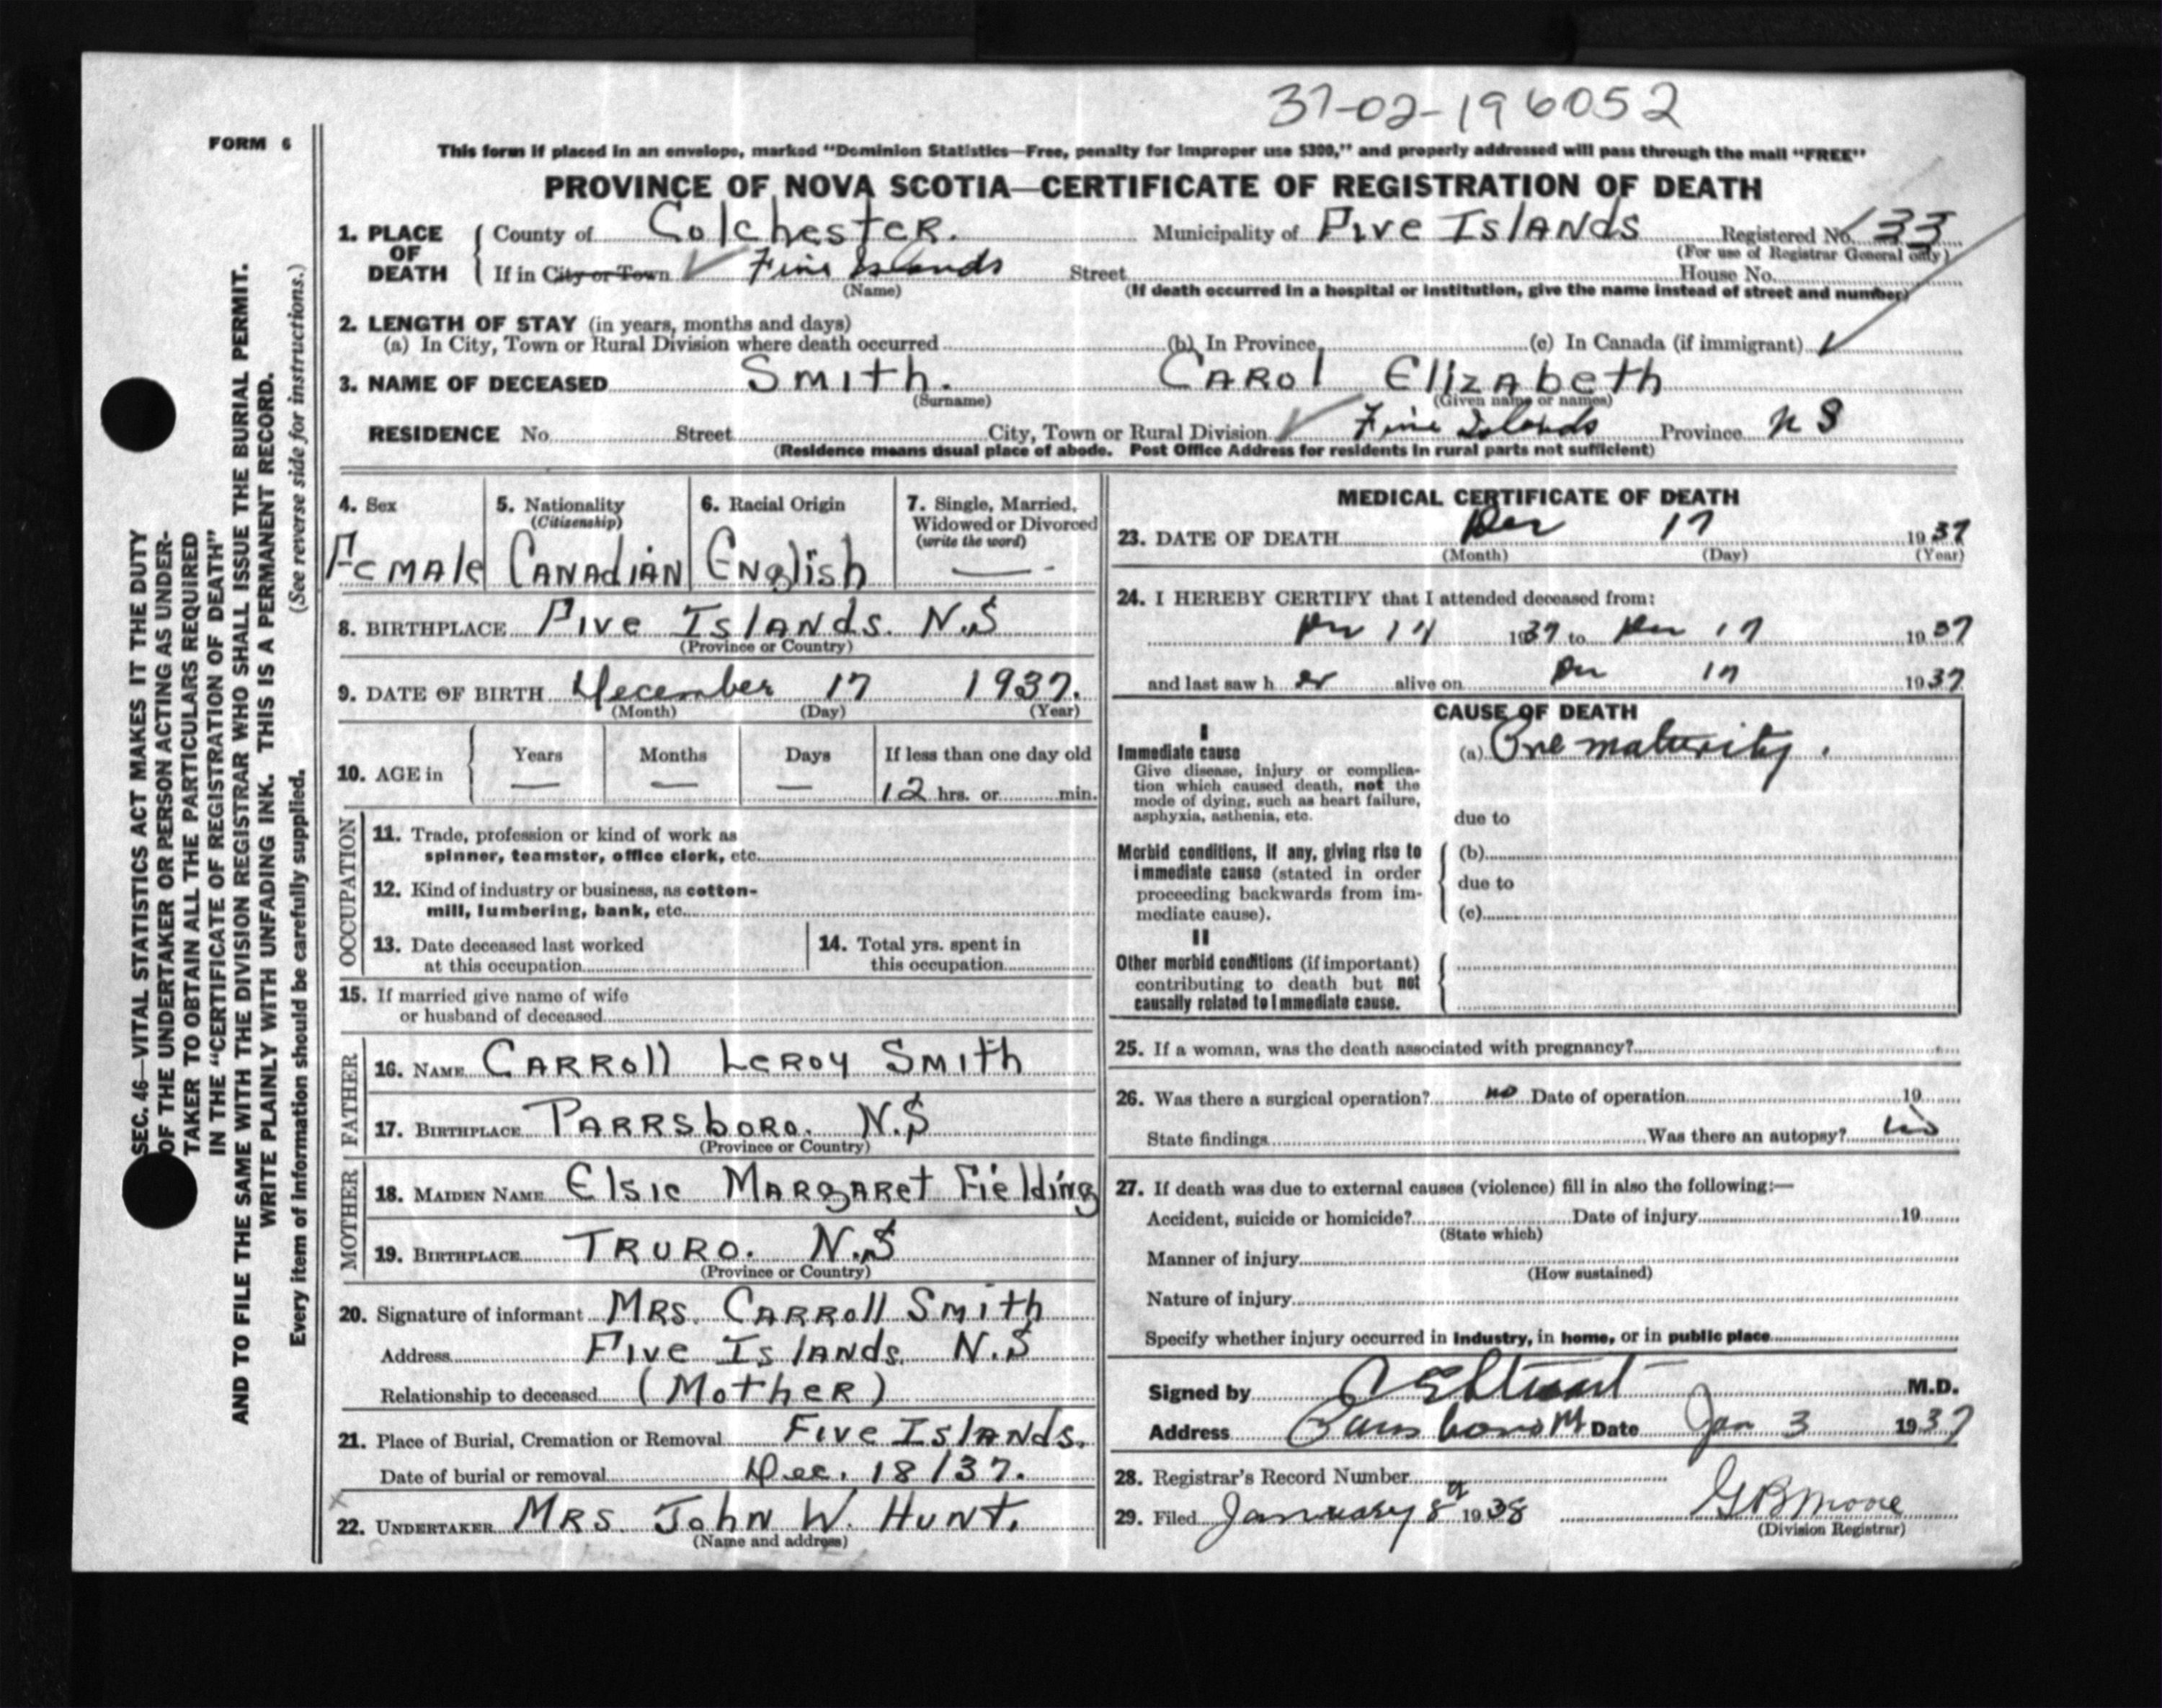 37-02-196052
FORM 6
This form if placed in an envelope, marked "Dominion Statistics—Free, penalty for improper use $300," and properly addressed will pass through the mail "FREE"
PROVINCE OF NOVA SCOTIA—CERTIFICATE OF REGISTRATION OF DEATH
1. PLACE OF DEATH County of Colchester. Municipality of Five Islands Registered No. 33
(For use of Registrar General only)
If in City or Town Five Islands Street House No.
(Name) (If death occurred in a hospital or institution, give the name instead of street and number)
2. LENGTH OF STAY (in years, months and days)
(a) In City, Town or Rural Division where death occurred (b) In Province (c) In Canada (if immigrant)
3. NAME OF DECEASED Smith. Carol Elizabeth
(Surname) (Given name or names)
RESIDENCE No. Street City, Town or Rural Division Five Islands Province N S
(Residence means usual place of abode. Post Office Address for residents in rural parts not sufficient)
SEC. 46—VITAL STATISTICS ACT MAKES IT THE DUTY
OF THE UNDERTAKER OR PERSON ACTING AS UNDER-
TAKER TO OBTAIN ALL THE PARTICULARS REQUIRED
IN THE "CERTIFICATE OF REGISTRATION OF DEATH"
AND TO FILE THE SAME WITH THE DIVISION REGISTRAR WHO SHALL ISSUE THE BURIAL PERMIT.
WRITE PLAINLY WITH UNFADING INK. THIS IS A PERMANENT RECORD.
Every item of information should be carefully supplied. (See reverse side for instructions.)
4. Sex 5. Nationality 6. Racial Origin 7. Single, Married,
(Citizenship) Widowed or Divorced
(write the word)
Female Canadian English —
8. BIRTHPLACE Five Islands. N.S
(Province or Country)
9. DATE OF BIRTH December 17 1937.
(Month) (Day) (Year)
10. AGE in Years Months Days If less than one day old
— — — 12 hrs. or min.
OCCUPATION
11. Trade, profession or kind of work as
spinner, teamster, office clerk, etc.
12. Kind of industry or business, as cotton-
mill, lumbering, bank, etc.
13. Date deceased last worked 14. Total yrs. spent in
at this occupation this occupation
15. If married give name of wife
or husband of deceased
FATHER
16. NAME Carroll Leroy Smith
17. BIRTHPLACE Parrsboro. N.S
(Province or Country)
MOTHER
18. MAIDEN NAME Elsie Margaret Fielding
19. BIRTHPLACE Truro. N.S
(Province or Country)
20. Signature of informant Mrs. Carroll Smith
Address Five Islands. N.S
Relationship to deceased (Mother)
21. Place of Burial, Cremation or Removal Five Islands.
Date of burial or removal Dec. 18/37.
22. UNDERTAKER Mrs. John W. Hunt.
(Name and address)
MEDICAL CERTIFICATE OF DEATH
23. DATE OF DEATH Dec 17 1937
(Month) (Day) (Year)
24. I HEREBY CERTIFY that I attended deceased from:
Dec 17 1937 to Dec 17 1937
and last saw h er alive on Dec 17 1937
CAUSE OF DEATH
I
Immediate cause (a) Prematurity.
Give disease, injury or complica-
tion which caused death, not the
mode of dying, such as heart failure,
asphyxia, asthenia, etc. due to
Morbid conditions, if any, giving rise to (b)
immediate cause (stated in order
proceeding backwards from im- due to
mediate cause). (c)
II
Other morbid conditions (if important)
contributing to death but not
causally related to immediate cause.
25. If a woman, was the death associated with pregnancy?
26. Was there a surgical operation? no Date of operation 19
State findings Was there an autopsy? no
27. If death was due to external causes (violence) fill in also the following:—
Accident, suicide or homicide? Date of injury 19
(State which)
Manner of injury
(How sustained)
Nature of injury
Specify whether injury occurred in industry, in home, or in public place
Signed by Stuart M.D.
Address Parrsboro Date Jan 3 1937
28. Registrar's Record Number
29. Filed January 8 1938 G B Moore
(Division Registrar)